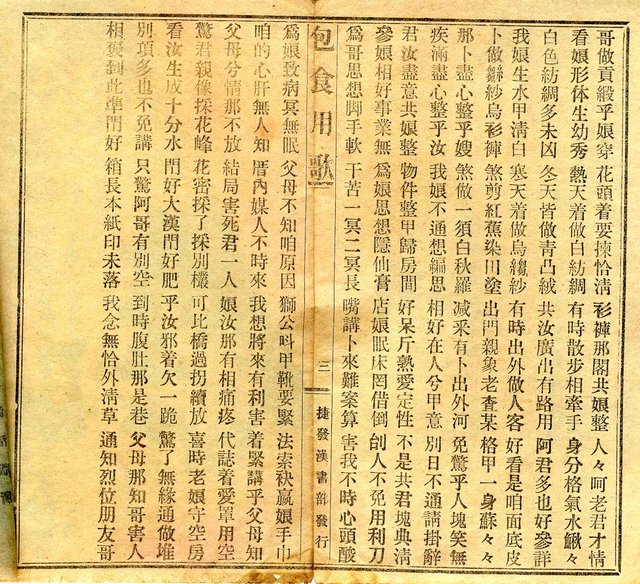 哥做貢緞乎娘穿 花頭着要揀恰清 衫褲那閣共娘整 人々呵老君才情
看娘形体生幼秀 熱天着做白紡綢 有時散步相牽手 身分格氣水鰍々
白色紡綢多未凶 冬天皆做青凸絨 共汝廣出有路用 阿君多也好參詳
我娘生水甲清白 寒天着做烏纖紗 有時出外做人客 好看是咱面底皮
卜做縐紗烏衫褲 煞剪紅蕉染田塗 出門親象老查某 格甲一身蘇々々
那卜盡心整乎嫂 煞做一須白秋羅 减采有卜出外河 免驚乎人塊笑無
疾滿盡心整乎汝 我娘不通想編思 相好在人兮甲意 別日不通請掛辭
君汝盡意共娘整 物件整甲歸房間 好呆斤熟愛定性 不是共君塊典清
參娘相好事業無 為娘思想隱仙膏 店娘眠床罔借倒 刣人不免用利刀
為哥思想脚手軟 干苦一冥二冥長 嘴講卜來難案算 害我不時心頭酸
包食用歌 三 捷發漢書部發行
為娘致病冥無眠 父母不知咱原因 獅公呌甲靴要緊 法索秧贏娘手巾
咱的心肝無人知 厝內媒人不時來 我想將來有利害 着緊講乎父母知
父母兮情那不放 結局害死君一人 娘汝那有相痛疼 代誌着愛罩用空
驚君親像採花峰 花密採了採別欉 可比橋過拐續放 喜時老娘守空房
看汝生成十分水 門好大漢門好肥 乎汝邪着欠一跪 驚了無緣通做堆
別項多也不免講 只驚阿哥有別空 到時腹肚那是巷 父母那知哥害人
相褒到此準門好 箱長本紙印未落 我念無恰外清草 通知烈位朋友哥